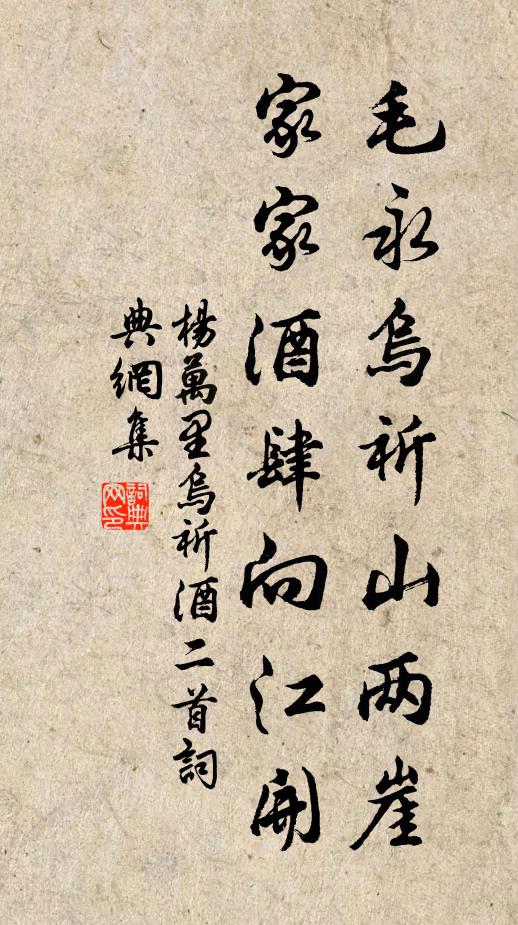 毛永烏祈山两崖
家家酒肆向江開
楊萬里烏祈酒二首詞
典網集
詞典网印